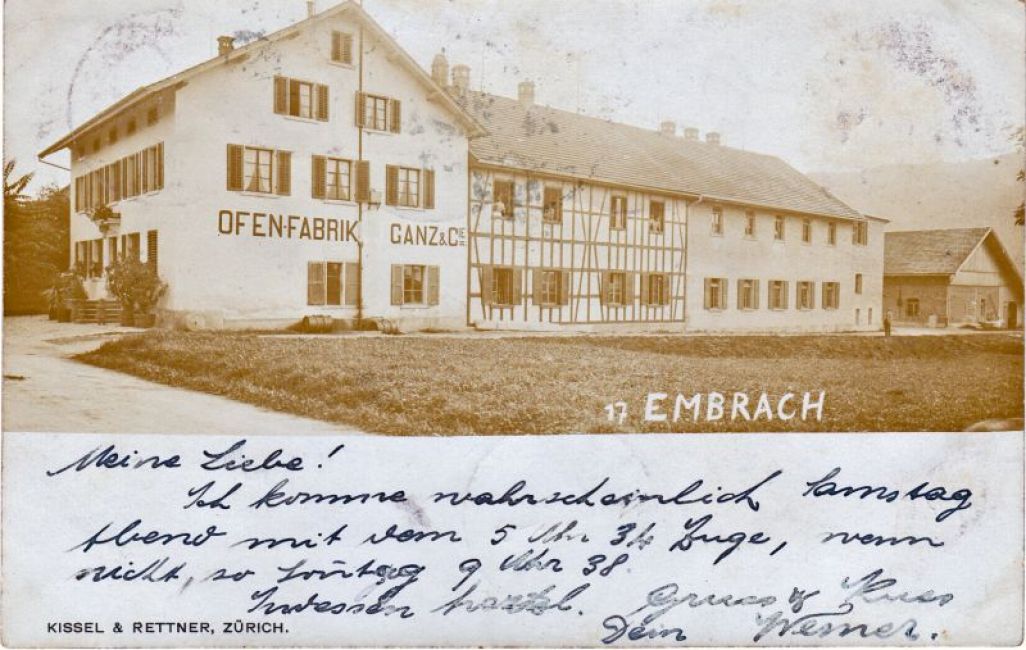 OFEN-FABRIK GANZ & CIE
17 EMBRACH
Meine Liebe!
Ich komme wahrscheinlich Samstag
Abend mit dem 5 Uhr 34 Zuge, wenn
nicht, so Sonntag 9 Uhr 38.
Indessen herzl. Gruss & Kuss
Dein Werner.
KISSEL & RETTNER, ZÜRICH.